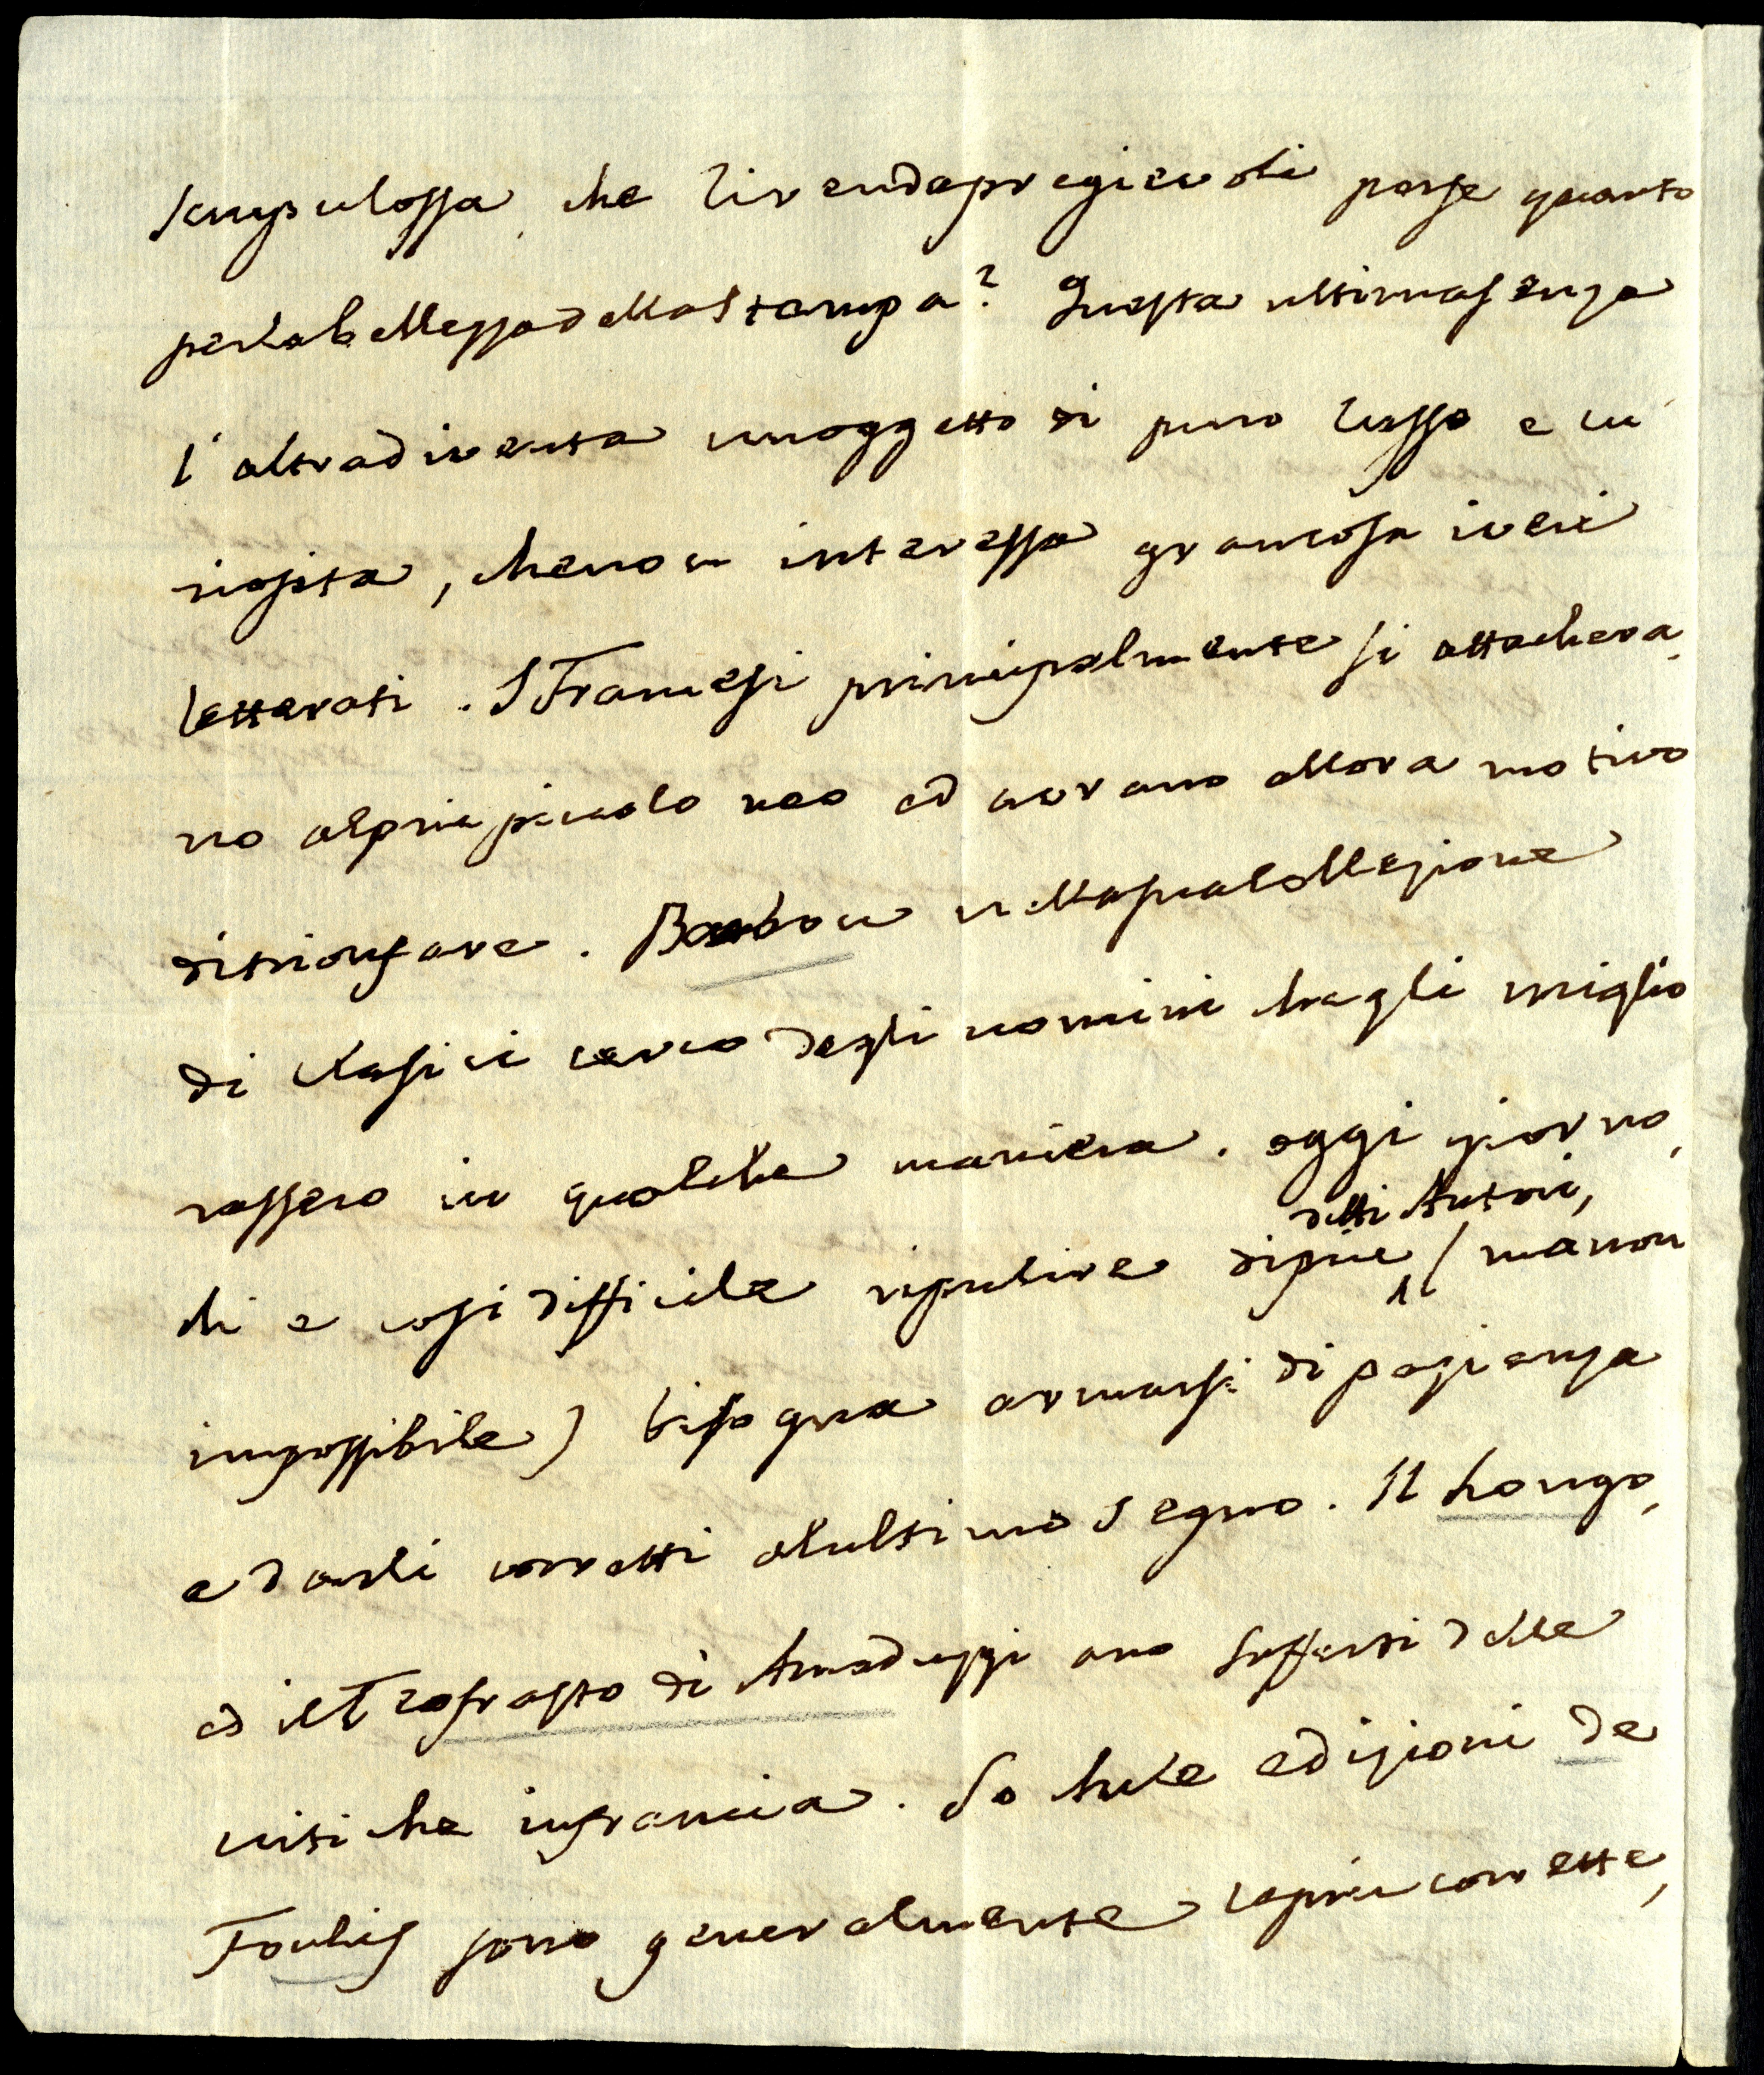 scrupulossa, che li renda pregievoli per se quanto
per la bellezza della Stampa? Questa ultima senza
l'altra diventa un oggetto di puro lusso e cu
riosita, che non interessa gran cosa i veri
letterati. I Francesi principalmente si attachera
no al piu piccolo neo ed avrano allora motivo
di trionfare. Barbou nella sua collezione
di Classici cerco degli uomini che gli miglio
rassero in qualche maniera. oggi giorno,
detti Autori,
chi e cosi difficile ripulire di piu / ma non
impossibile) bisogna armarsi di pazienza
e darli corretti al ultimo Segno. Il Longo,
ed il Teofrasto di Amaduzzi ano soffersi delle
critiche in francia. So che le edizioni de
Foulis sono generalmente le piu corrette,